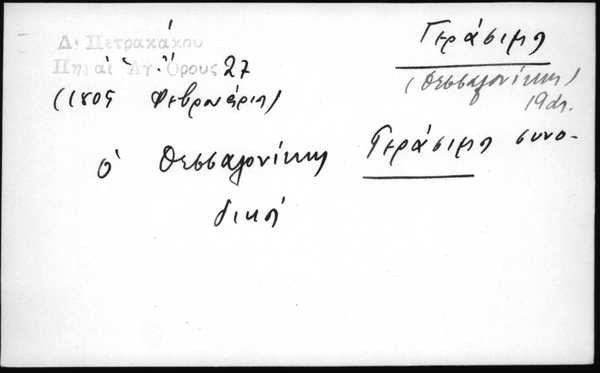 Δ. Πετρακάκου
Πηγαί Ἁγ. Ὄρους 27
(1805 Φεβρουάριος)
Γεράσιμος
(Θεσσαλονίκης)
19ος
ὁ Θεσσαλονίκης Γεράσιμος συνο-
δικός